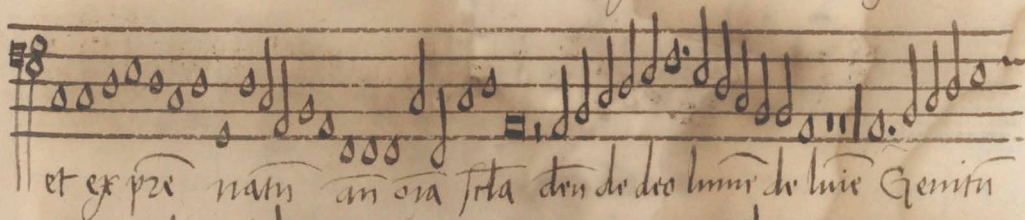 et ex pr̃e natũ añ oĩa sc̃la deũ de deo lumẽ de luĩe Genitũ